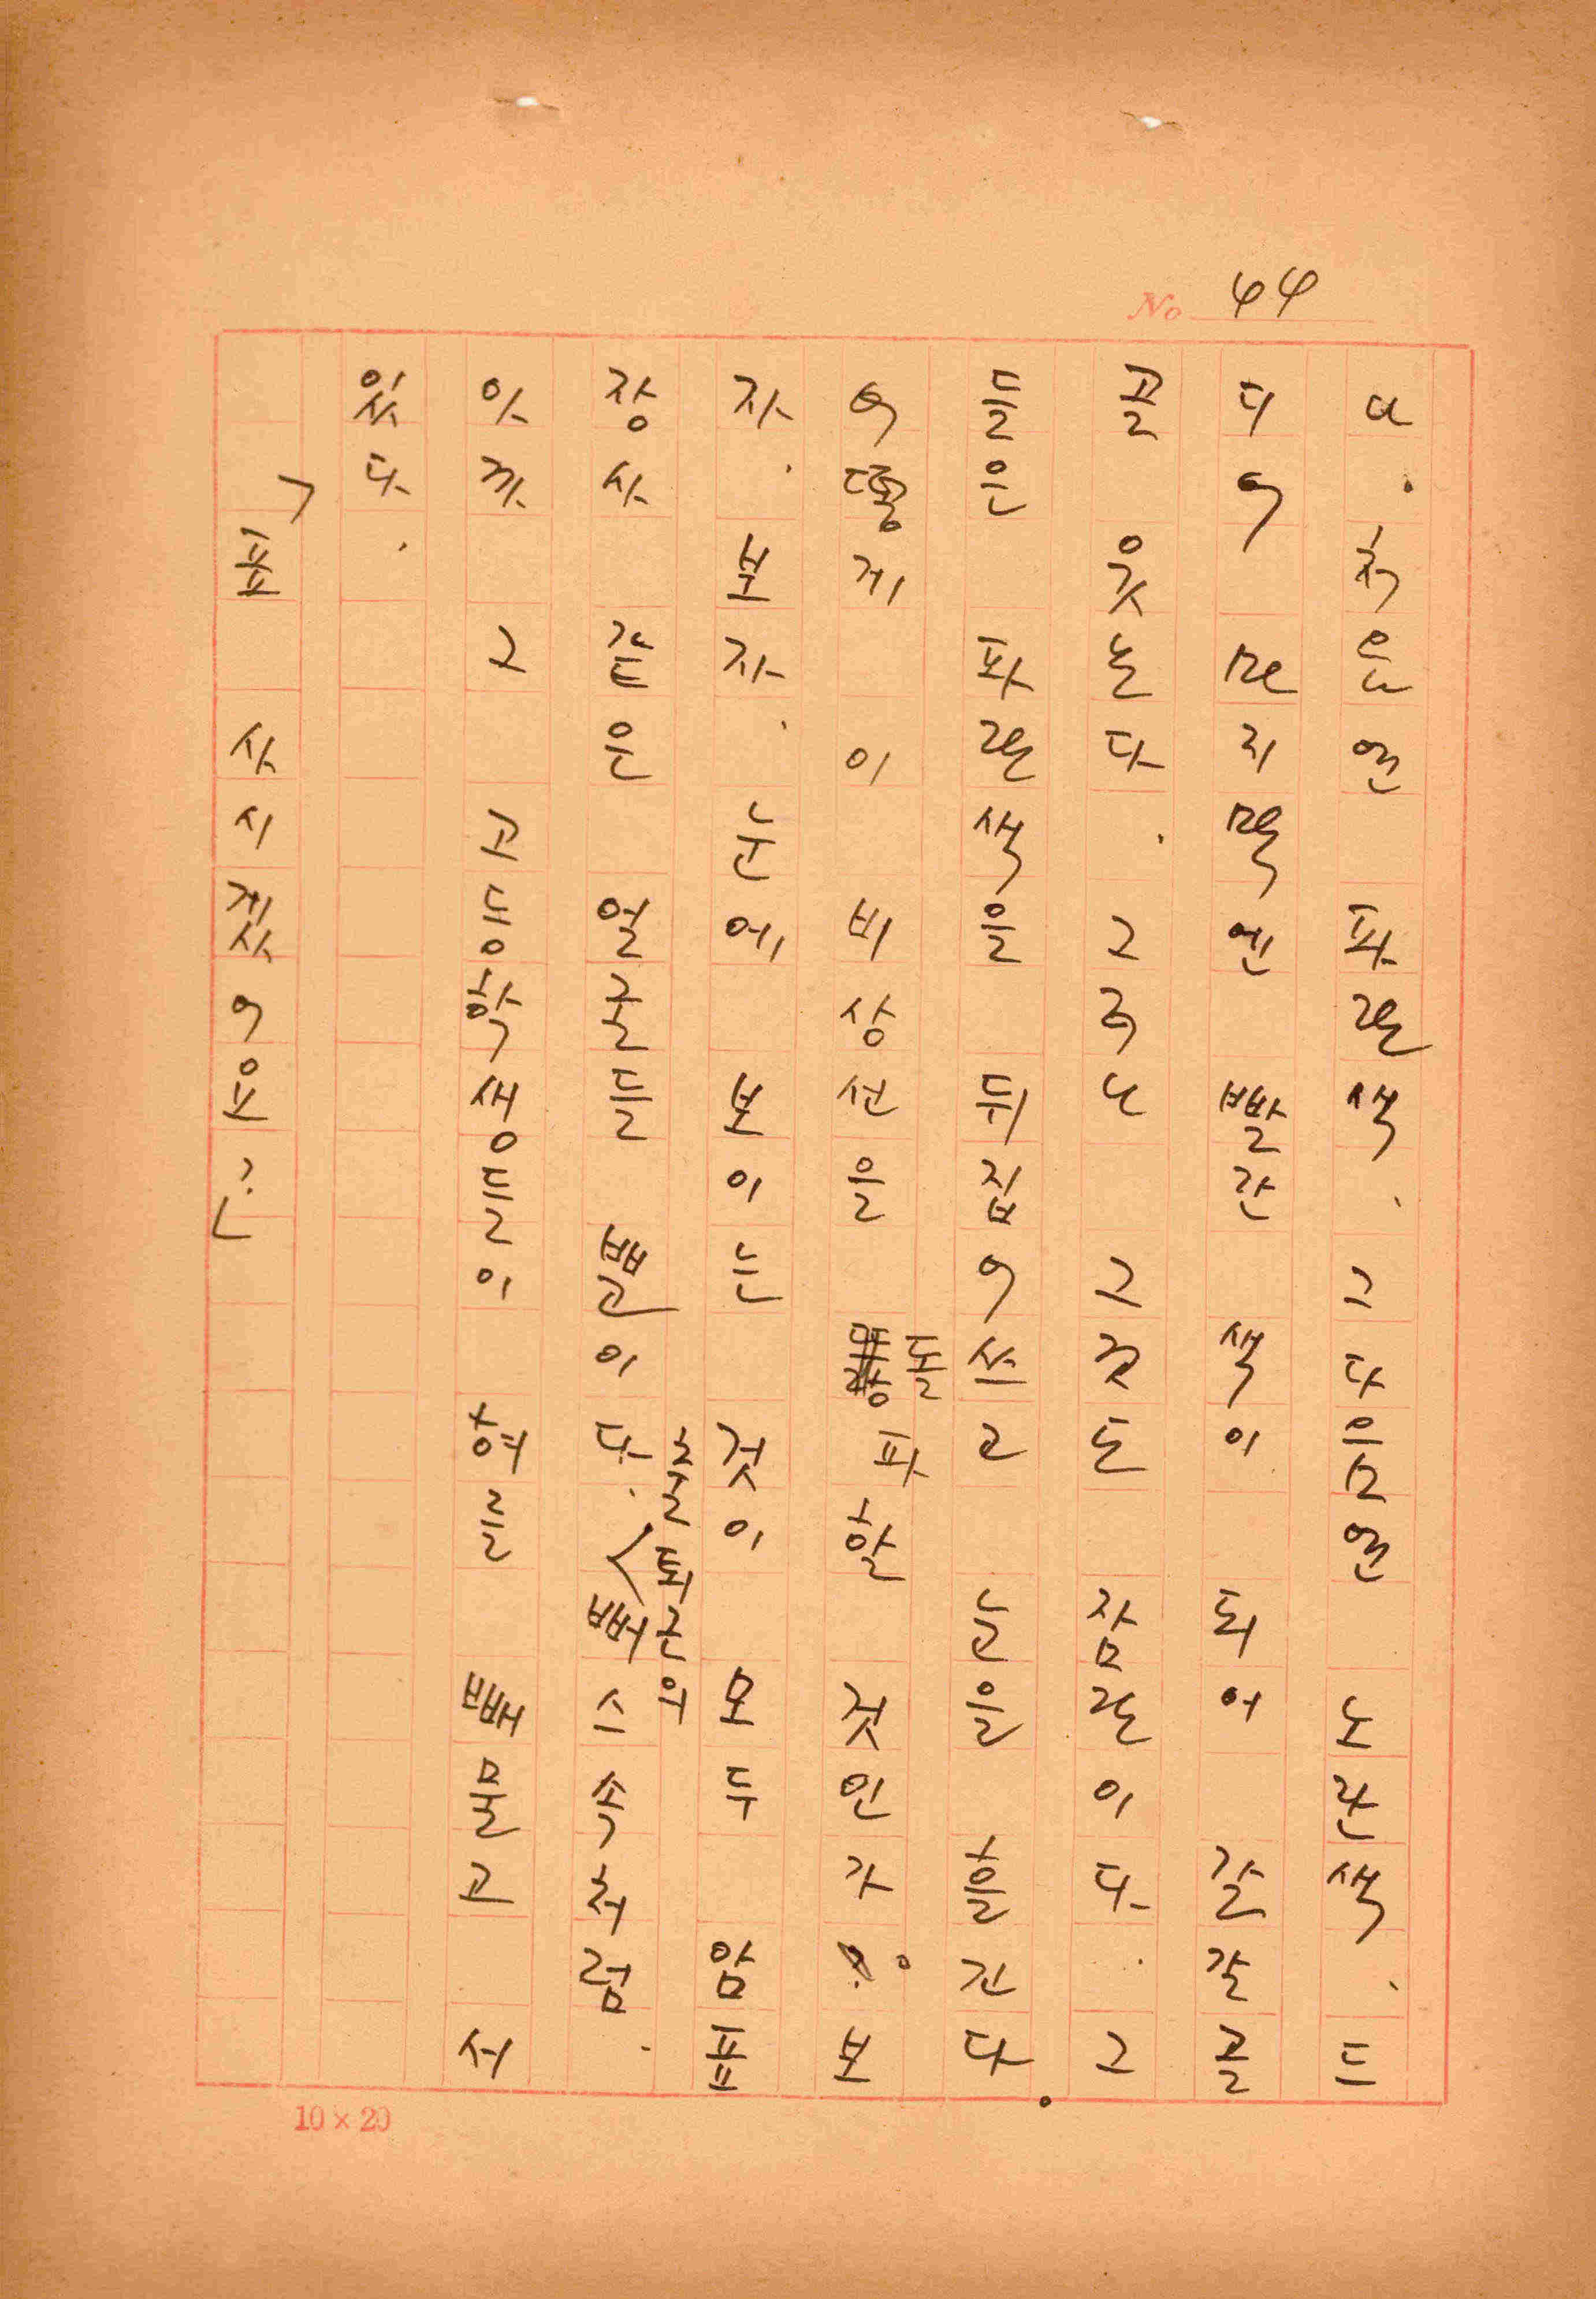 No 44
다. 처음엔 파란색, 그다음엔 노란색, 드
디어 마지막엔 빨간색이 되어 갈갈골
골 웃는다. 그러나 그것도 잠깐이다. 그
들은 파란색을 뒤집어쓰고 눈을 흘긴다.
어떻게 이 비상선을 돌파할 것인가. 보
자. 보자. 눈에 보이는 것이 모두 암표
장사 같은 얼굴들뿐이다. 출퇴근의 뻐스 속처럼.
아까 그 고등학생들이 혀를 빼물고 서
있다.
「표 사시겠어요?」
10×20